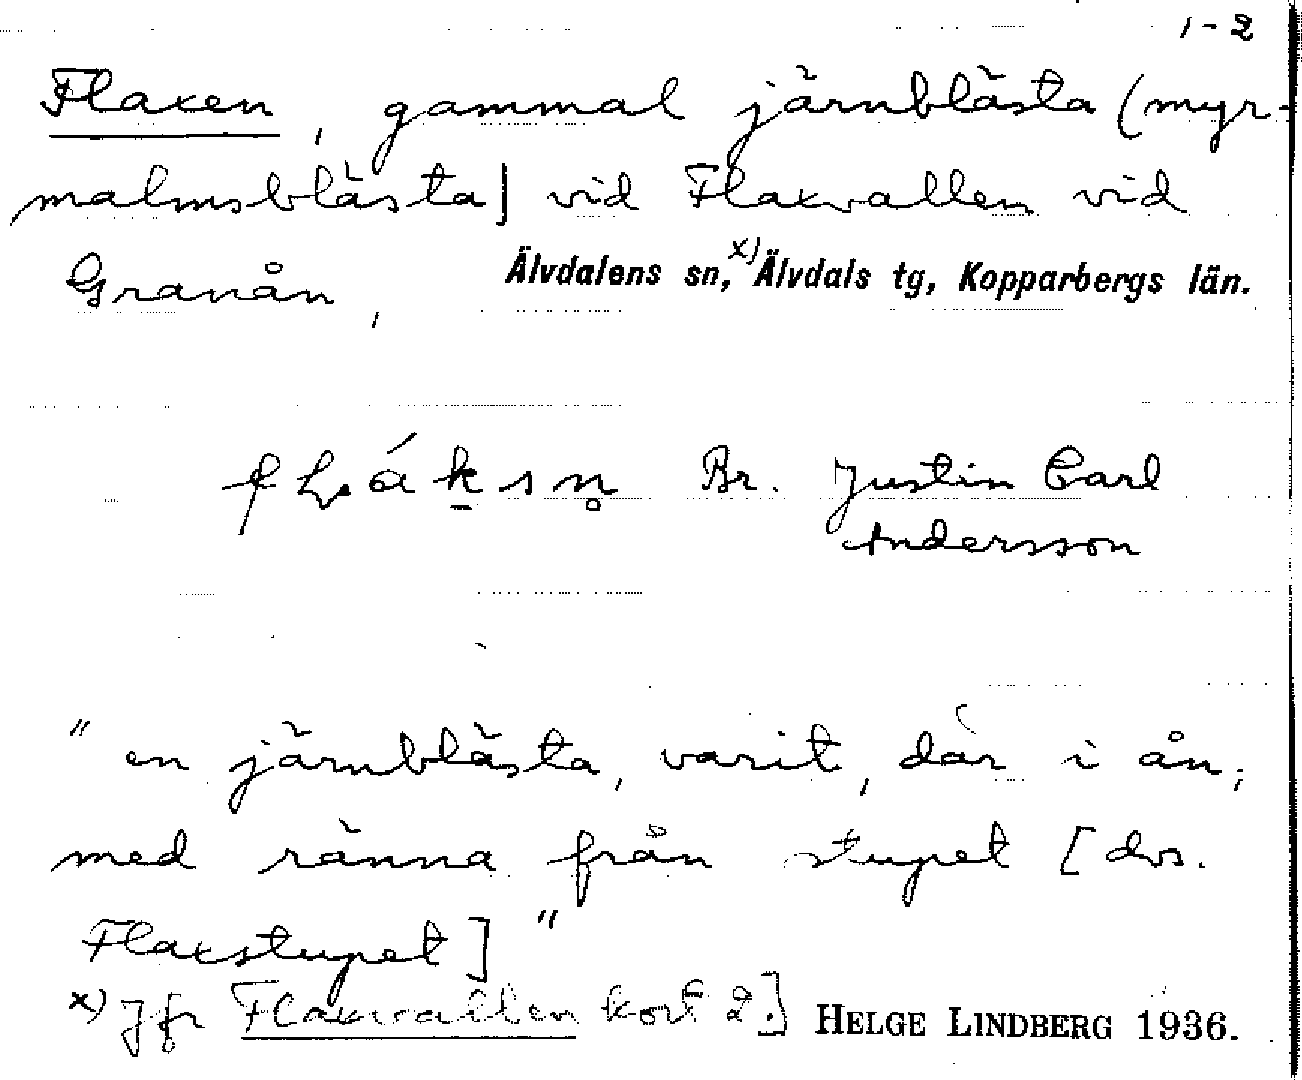 1-2
Flaxen, gammal järnblästa (myr-
malmsblästa] vid Flaxvallen vid
Granån, Älvdalens sn, x) Älvdals tg, Kopparbergs län.
Br. Justin Carl
Andersson
" en järnblästa, varit, där i ån;
med ränna från stupet [dvs.
Flaxstupet] "
x) Jfr Flaxvallen kort 2.] HELGE LINDBERG 1936.